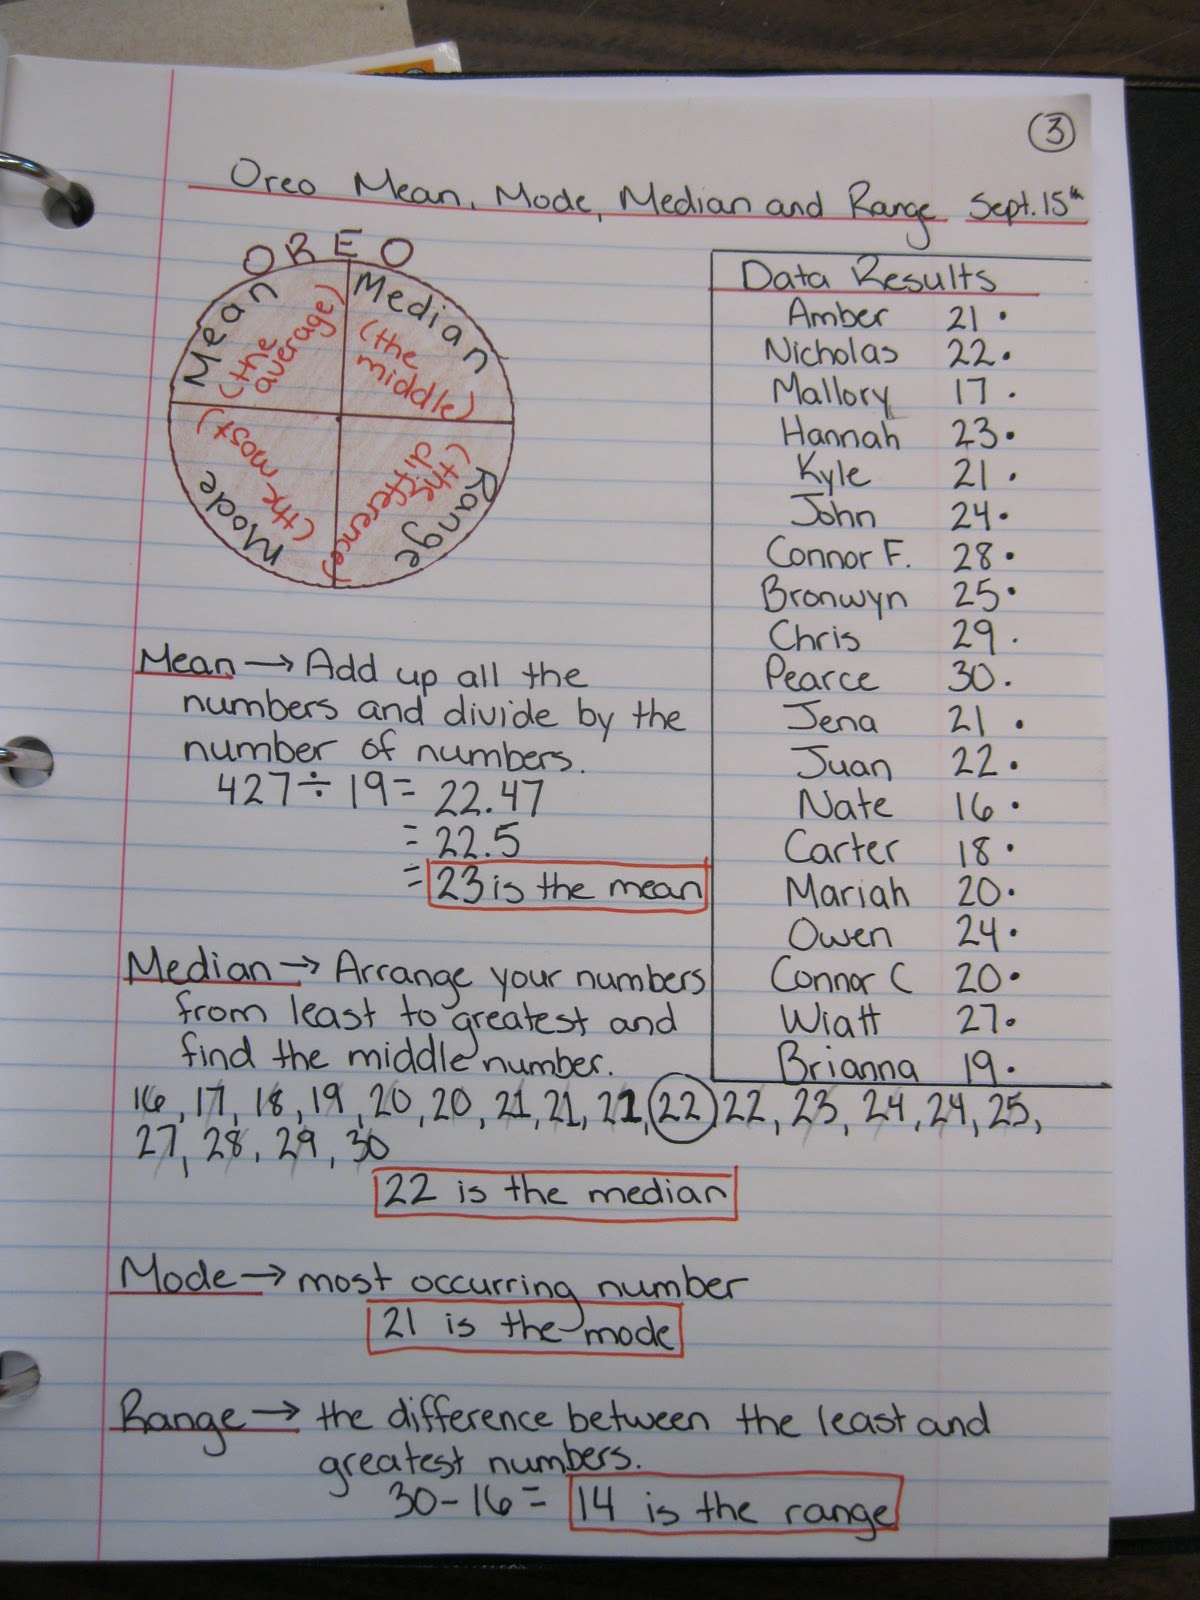 3
Oreo Mean, Mode, Median and Range Sept. 15th
OREO
Mean
(the average)
Median
(the middle)
Mode
(the most)
Range
(the difference)
Data Results
Amber 21 •
Nicholas 22 •
Mallory 17 •
Hannah 23 •
Kyle 21 •
John 24 •
Connor F. 28 •
Bronwyn 25 •
Chris 29 •
Pearce 30 •
Jena 21 •
Juan 22 •
Nate 16 •
Carter 18 •
Mariah 20 •
Owen 24 •
Connor C 20 •
Wiatt 27 •
Brianna 19 •
Mean → Add up all the
numbers and divide by the
number of numbers.
427 ÷ 19 = 22.47
= 22.5
= 23 is the mean
Median → Arrange your numbers
from least to greatest and
find the middle number.
16, 17, 18, 19, 20, 20, 21, 21, 21, 22, 22, 23, 24, 24, 25,
27, 28, 29, 30
22 is the median
Mode → most occurring number
21 is the mode
Range → the difference between the least and
greatest numbers.
30 - 16 = 14 is the range